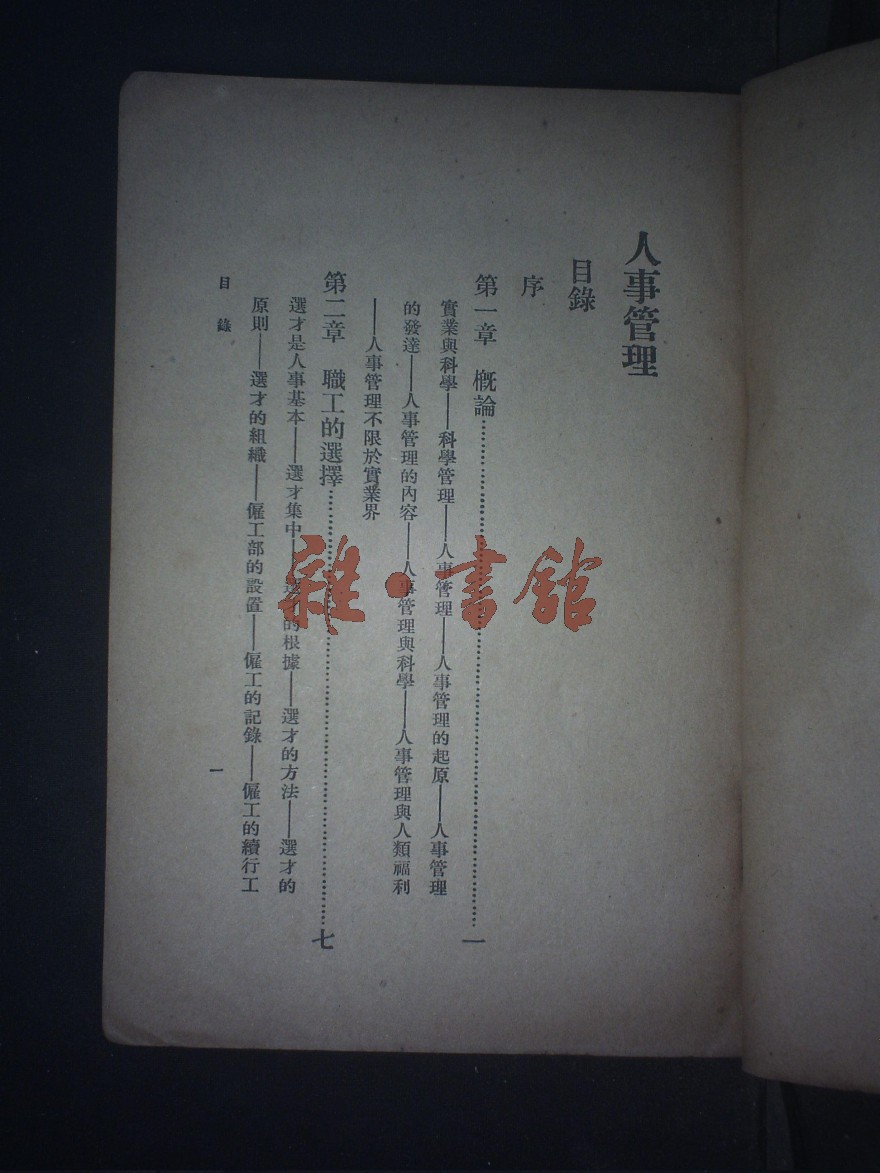 人事管理
目錄
序
第一章　概論……一
實業與科學——科學管理——人事管理——人事管理的起原——人事管理
的發達——人事管理的內容——人事管理與科學——人事管理與人類福利
——人事管理不限於實業界
第二章　職工的選擇……七
選才是人事基本——選才集中——選才的根據——選才的方法——選才的
原則——選才的組織——僱工部的設置——僱工的記錄——僱工的續行工
目錄
一
雜·書館